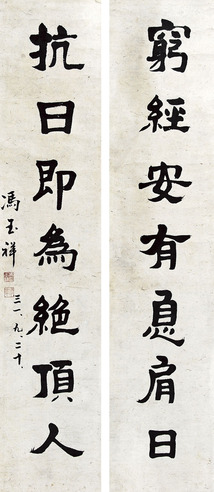 窮經安有息肩日
抗日即為絕頂人
馮玉祥
三一、九、二十、